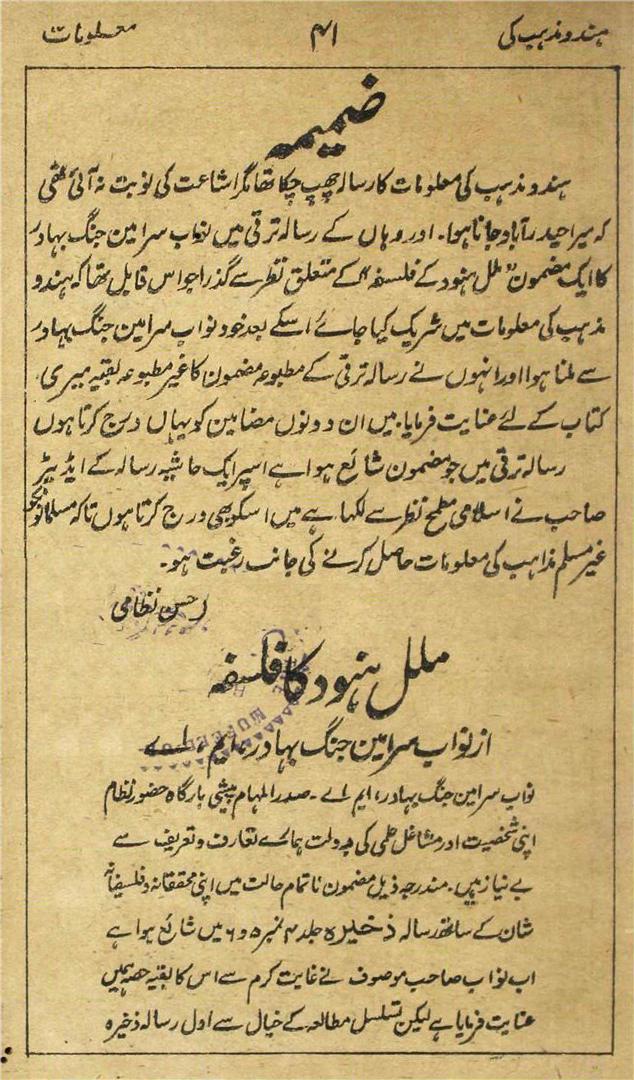 ہندو مذہب کی
۴۱
معلومات
ضمیمہ
ہندو مذہب کی معلومات کا رسالہ چھپ چکا تھا مگر اشاعت کی نوبت نہ آئی تھی
کہ میرا حیدرآباد جانا ہوا۔ اور وہاں کے رسالہ ترقی میں نواب سرامین جنگ بہادر
کا ایک مضمون "ملل ہنود کے فلسفہ" کے متعلق نظر سے گذرا جو اس قابل تھا کہ ہندو
مذہب کی معلومات میں شریک کیا جائے اسکے بعد خود نواب سرامین جنگ بہادر
سے ملنا ہوا اور انہوں نے رسالہ ترقی کے مطبوعہ مضمون کا غیر مطبوعہ بقیہ میری
کتاب کے لئے عنایت فرمایا۔ میں ان دونوں مضامین کو یہاں درج کرتا ہوں
رسالہ ترقی میں جو مضمون شائع ہوا ہے اسپر ایک حاشیہ رسالہ کے ایڈیٹر
صاحب نے اسلامی مطمح نظر سے لکھا ہے میں اسکو بھی درج کرتا ہوں تاکہ مسلمانونکو
غیر مسلم مذاہب کی معلومات حاصل کرنے کی جانب رغبت ہو۔
حسن نظامی
ملل ہنود کا فلسفہ
از نواب سرامین جنگ بہادر، ایم، اے
نواب سرامین جنگ بہادر، ایم اے۔ صدر المہام پیشی بارگاہ حضور نظام
اپنی شخصیت اور مشاغل علمی کی بدولت ہمارے تعارف و تعریف سے
بے نیاز ہیں۔ مندرجہ ذیل مضمون ناتمام حالت میں اپنی محققانہ و فلسفیانہ
شان کے ساتھ رسالہ ذخیرہ جلد ۴ نمبر ۵ و ۶ میں شائع ہوا ہے
اب نواب صاحب موصوف نے غایت کرم سے اس کا بقیہ حصہ ہمیں
عنایت فرمایا ہے لیکن تسلسل مطالعہ کے خیال سے اول رسالہ ذخیرہ